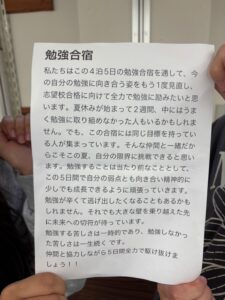 勉強合宿
私たちはこの４泊5日の勉強合宿を通して、今
の自分の勉強に向き合う姿をもう１度見直し、
志望校合格に向けて全力で勉強に励みたいと思
います。夏休みが始まって２週間、中にはうま
く勉強に取り組めなかった人もいるかもしれま
せん。でも、この合宿には同じ目標を持ってい
る人が集まっています。そんな仲間と一緒だか
らこそこの夏、自分の限界に挑戦できると思い
ます。勉強することは当たり前なこととして、
この5日間で自分の弱点とも向き合い精神的に
少しでも成長できるように頑張っていきます。
勉強が辛くて逃げ出したくなることもあるかも
しれません。それでも大きな壁を乗り越えた先
に未来への切符が待っています。
勉強する苦しさは一時的であり、勉強しなかっ
た苦しさは一生続くです。
仲間と協力しながら5日間全力で駆け抜けま
しょう！！